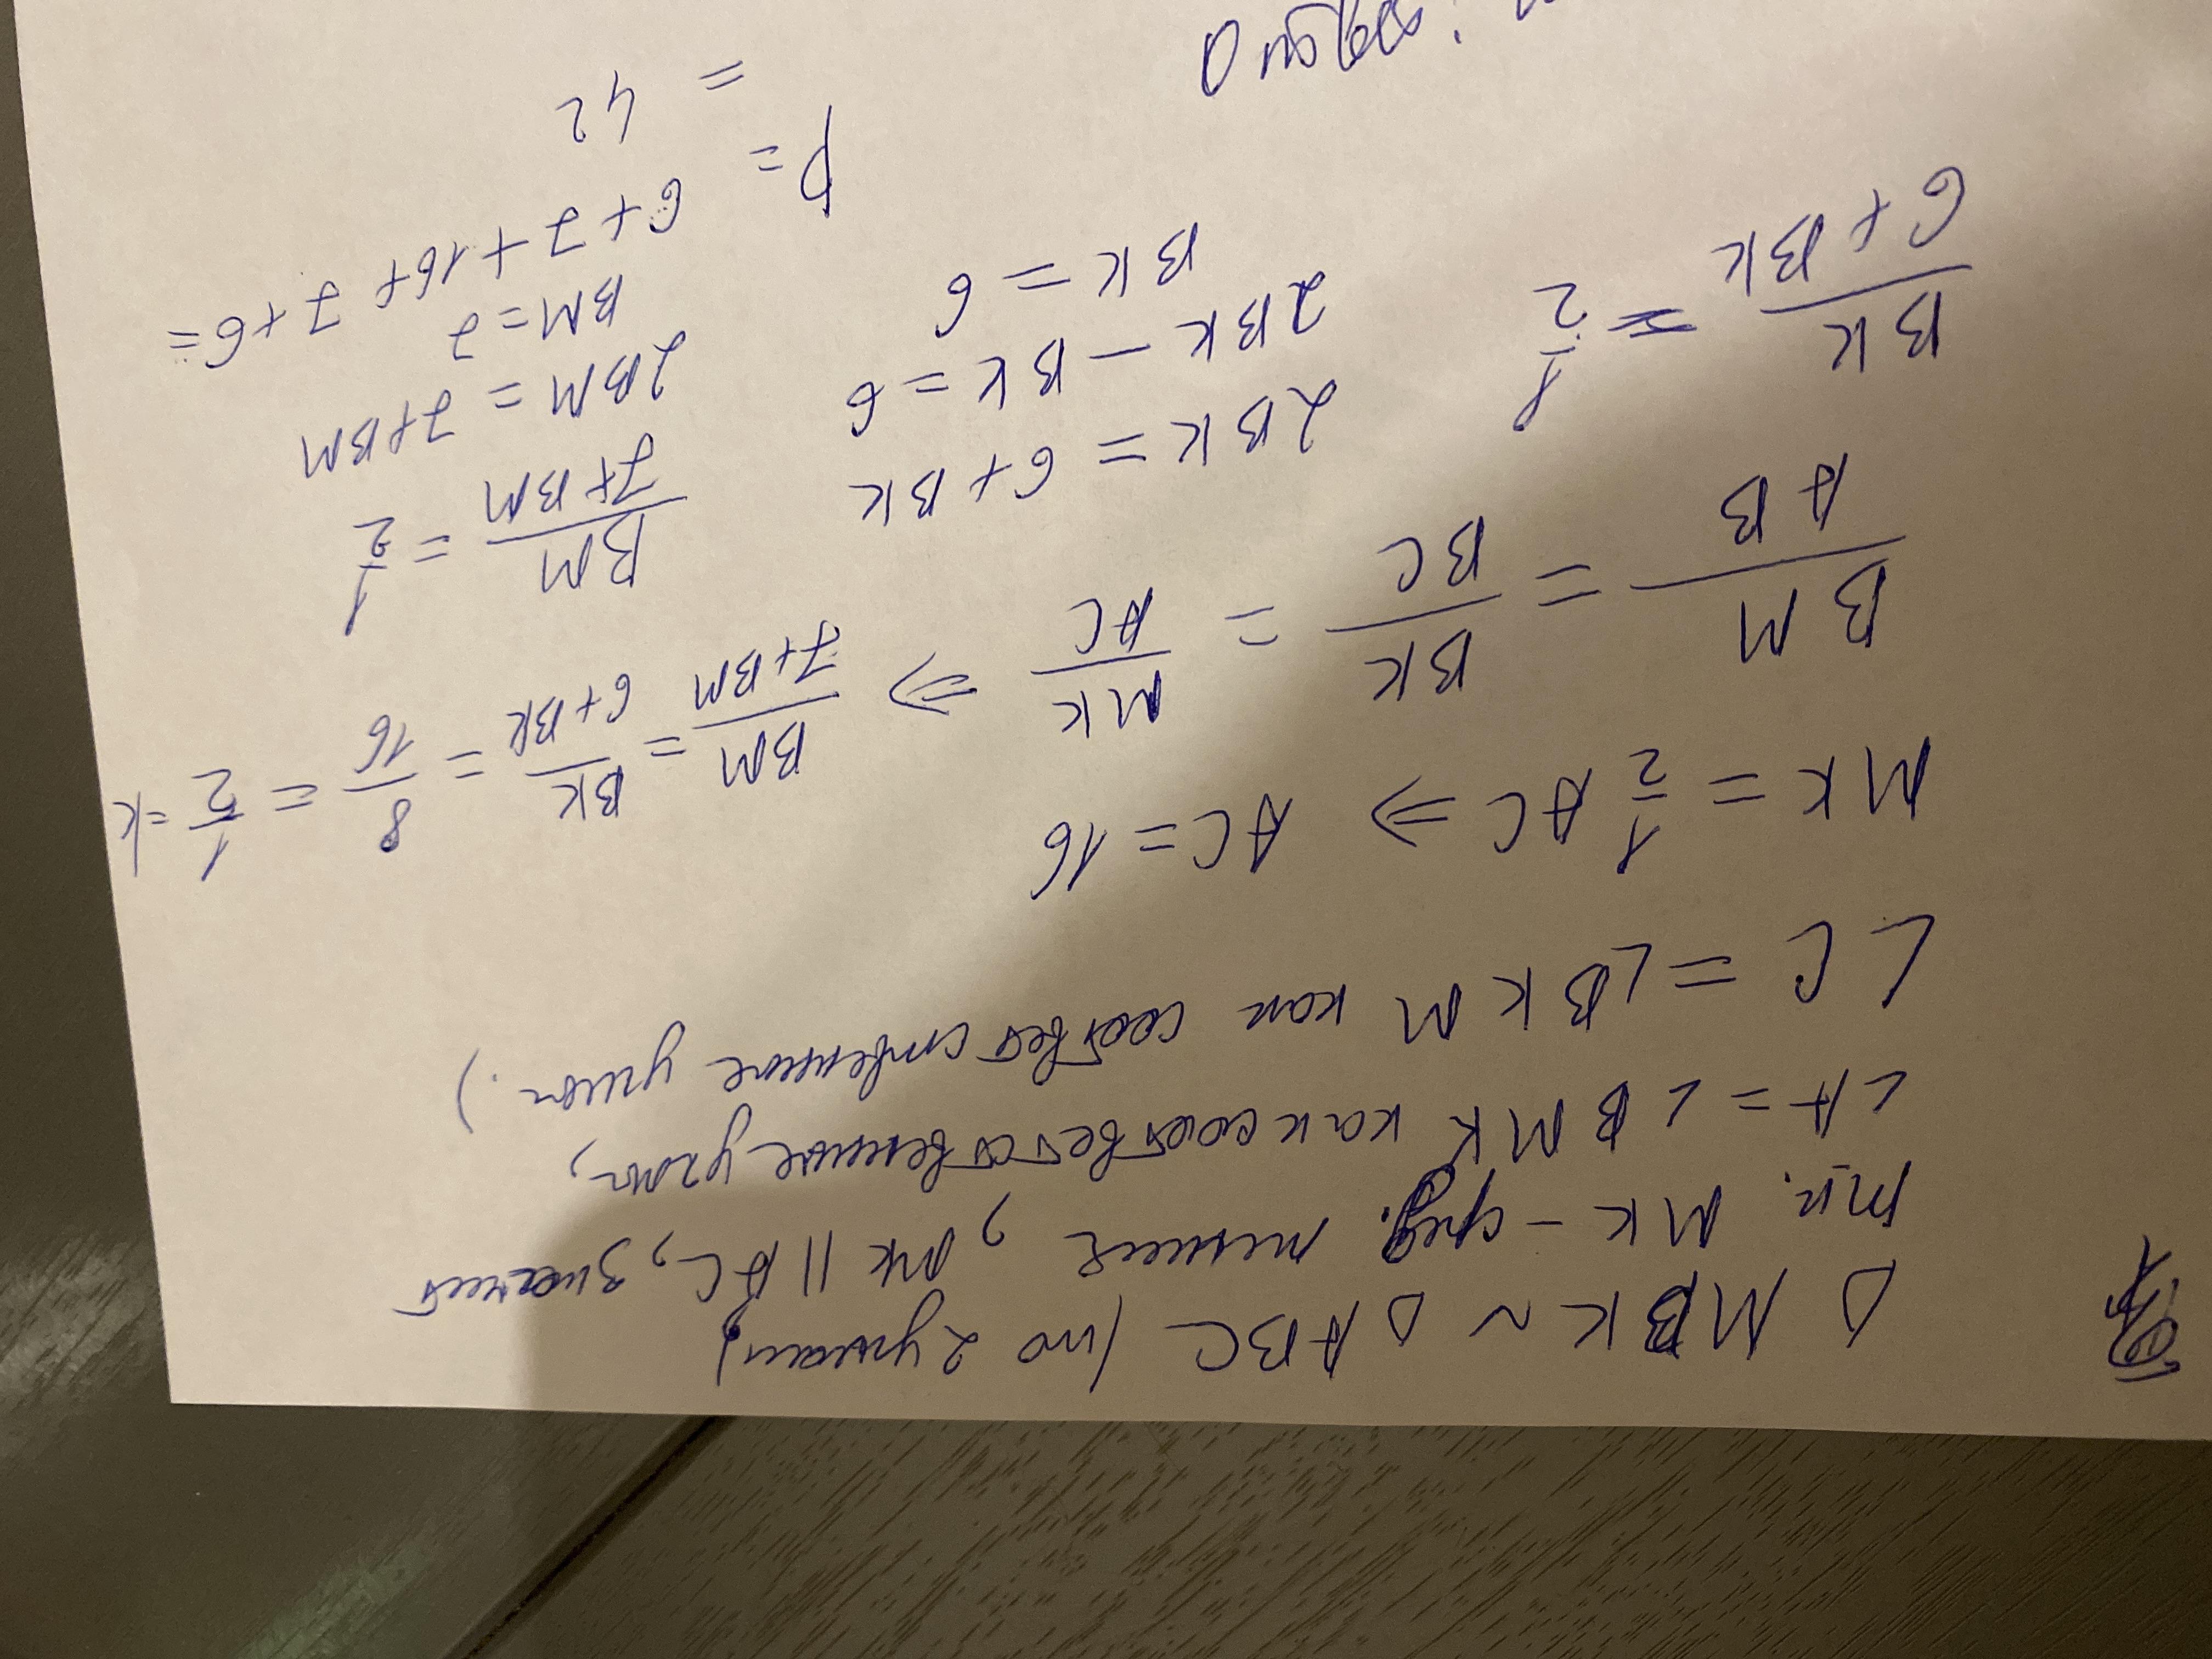 Δ MBK ~ Δ ABC (по 2 углам,
т.к. MK – сред. линия, MK || AC, значит
∠A = ∠BMK как соответственные углы,
∠C = ∠BKM как соответственные углы.)
MK = 1/2 AC ⇒ AC = 16
BM/AB = BK/BC = MK/AC ⇒ BM/7+BM = BK/6+BK = 8/16 = 1/2 = k
BK/6+BK = 1/2
2BK = 6+BK
2BK – BK = 6
BK = 6
BM/7+BM = 1/2
2BM = 7+BM
BM = 7
P = 6+7+16+7+6 =
= 42